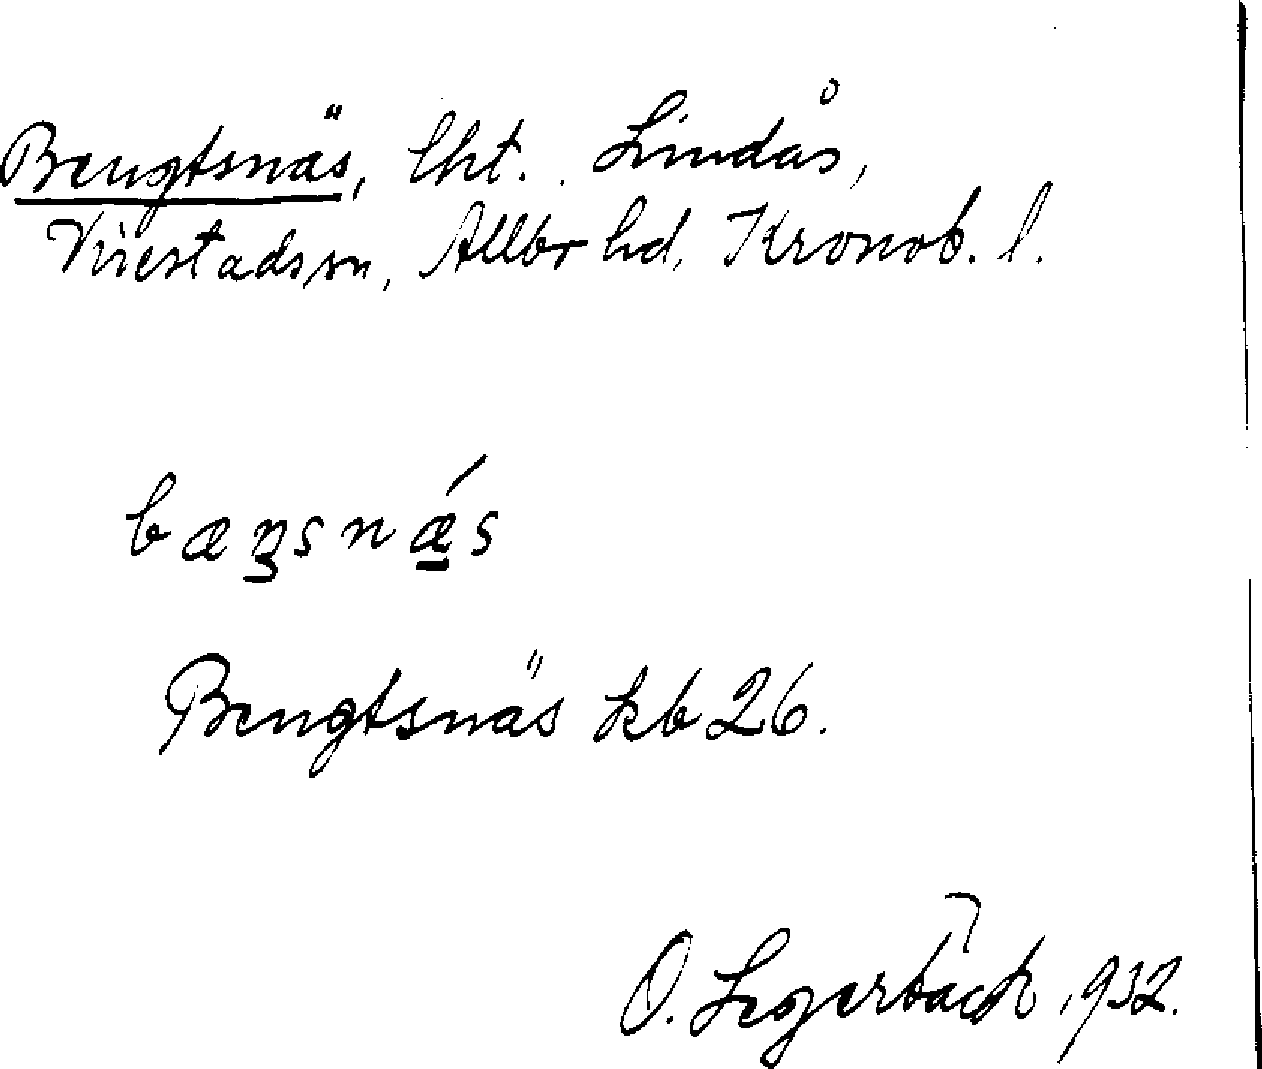 Bengtsnäs, lht. Lindås,
Virestads sn, Allbo hd, Kronob. l.
bæŋsnǽs
Bengtsnäs kb 26.
O. Segerbäck, 932.